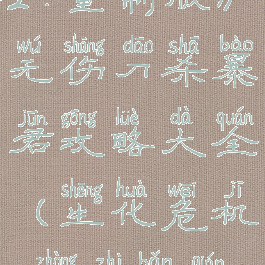 wú shāng dāo shā bào
无伤刀杀暴
jūn gōng lüè dà quán
君攻略大全
shēng huà wēi jī
（生化危机